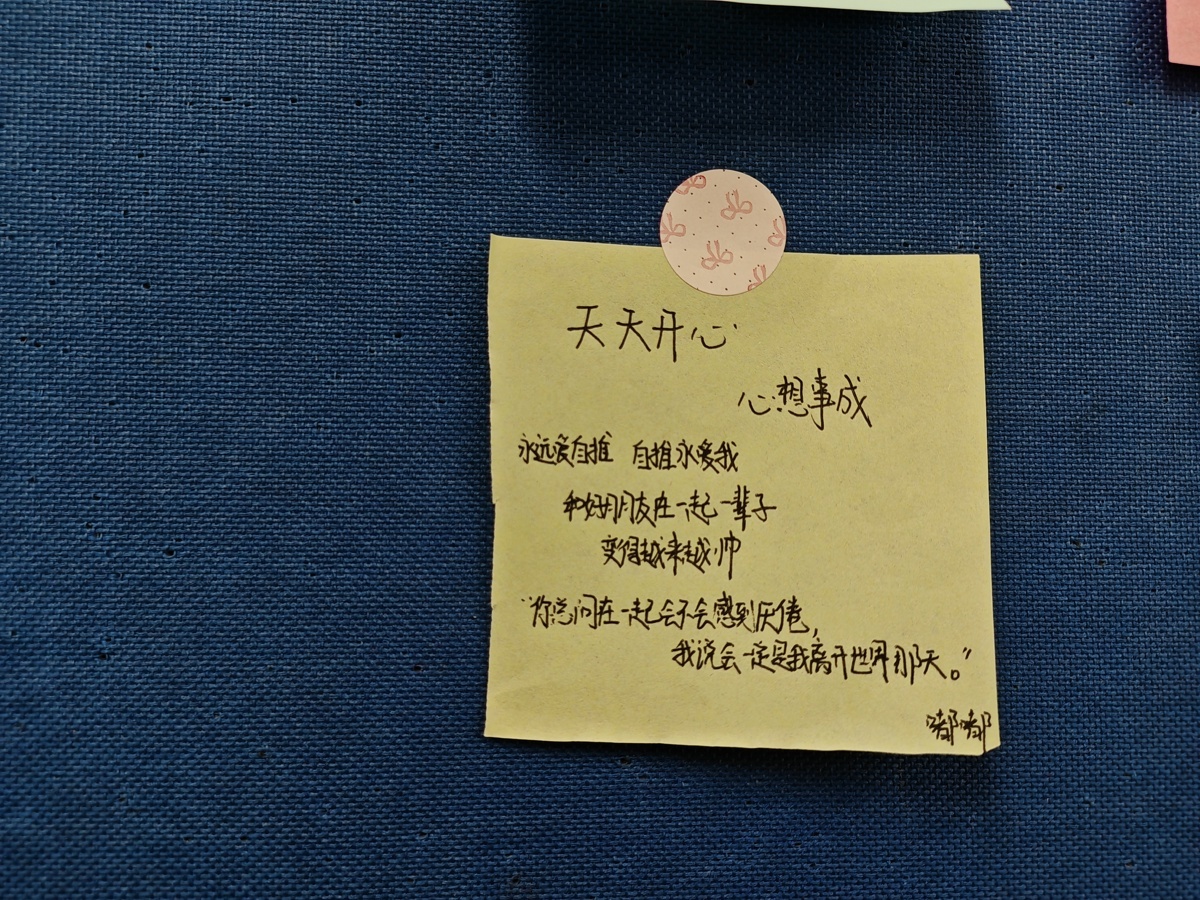 天天开心
心想事成
永远爱自推 自推永爱我
和好朋友在一起一辈子
变得越来越帅
“你总问在一起会不会感到厌倦，
我说会一定是我离开世界那天。”
嘟嘟